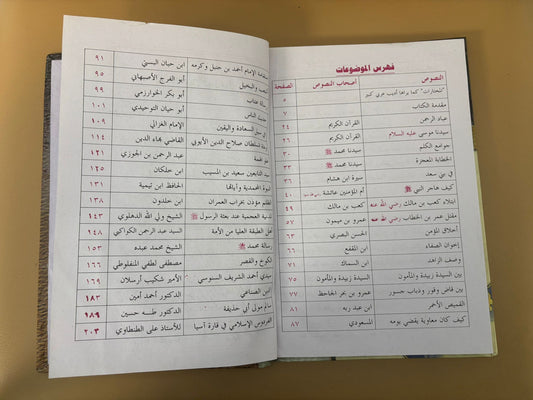 فهرس الموضوعات
النصوص أصحاب النصوص الصفحة
"المختارات" كما يراها أديب عربي كبير ٥
مقدمة الكتاب ٧
عباد الرحمن القرآن الكريم ٢٤
سيدنا موسى عليه السلام القرآن الكريم ٢٦
جوامع الكلم سيدنا محمد ﷺ ٣٠
الخطابة المعجزة سيدنا محمد ﷺ ٣٣
في بني سعد سيرة ابن هشام ٣٦
كيف هاجر النبي ﷺ أم المؤمنين عائشة ٤٠
ابتلاء كعب بن مالك رضي الله عنه كعب بن مالك ٤٩
مقتل عمر بن الخطاب رضي الله عنه عمرو بن ميمون ٥٧
أخلاق المؤمن الحسن البصري ٦٣
إخوان الصفاء ابن المقفع ٦٦
وصف الزاهد ابن السماك ٧١
بين السيدة زبيدة والمأمون السيدة زبيدة والمأمون ٧٥
بين قاض وقور وذباب جسور عمرو بن بحر الجاحظ ٧٧
القميص الأحمر ابن عبد ربه ٨١
كيف كان معاوية يقضي يومه المسعودي ٨٧
استقامة الإمام أحمد بن حنبل وكرمه ابن حبان البستي ٩١
والبخيل أبو الفرج الأصبهاني ٩٥
رسالة عتاب أبو بكر الخوارزمي ٩٩
الناس أبو حيان التوحيدي ١٠١
السعادة واليقين الإمام الغزالي ١٠٩
السلطان صلاح الدين الأيوبي القاضي بهاء الدين ١١٤
عبد الرحمن بن الجوزي ١٢١
سيد التابعين سعيد بن المسيب ابن خلكان ١٢٥
النبوة المحمدية وآياتها الحافظ ابن تيمية ١٣١
الظلم مؤذن بخراب العمران ابن خلدون ١٣٨
العجمية عند بعثة الرسول ﷺ الشيخ ولي الله الدهلوي ١٤٣
أهل الطبقة العليا من الأمة السيد عبد الرحمن الكواكبي ١٤٨
رسالة محمد ﷺ الشيخ محمد عبده ١٥٣
الكوخ والقصر مصطفى لطفي المنفلوطي ١٦٦
سيدي أحمد الشريف السنوسي الأمير شكيب أرسلان ١٦٩
الصناعي الدكتور أحمد أمين ١٨٣
سالم مولى أبي حذيفة الدكتور طه حسين ١٨٩
الفردوس الإسلامي في قارة آسيا للأستاذ علي الطنطاوي ٢٠٣